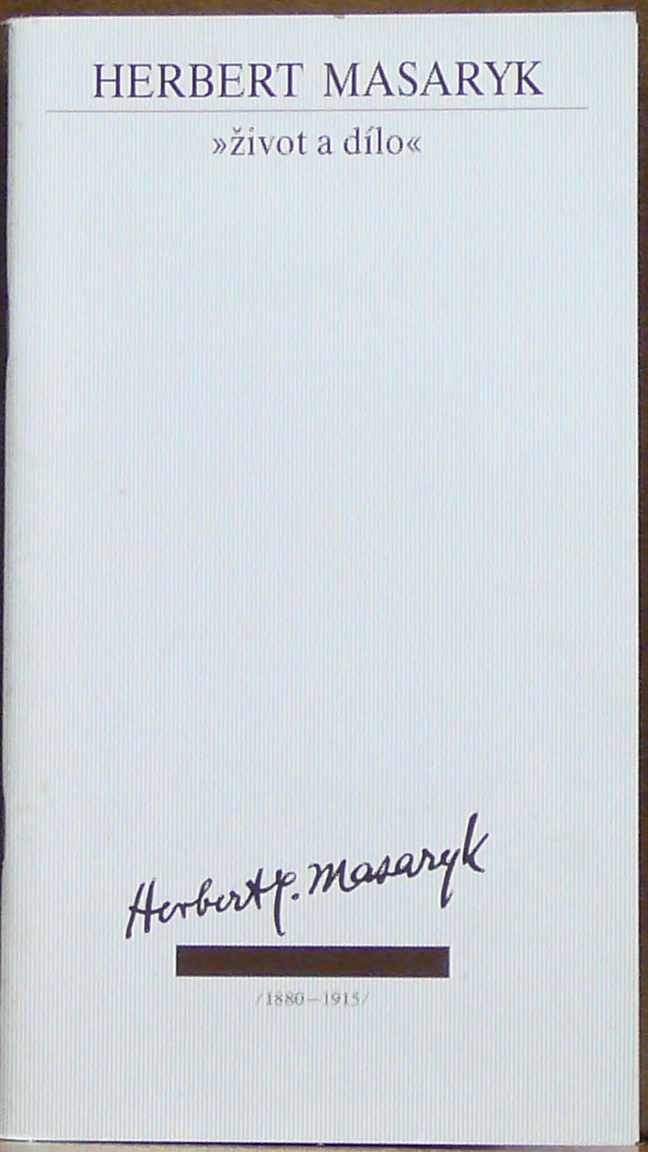 HERBERT MASARYK
»život a dílo«
Herbert G. Masaryk
/1880–1915/